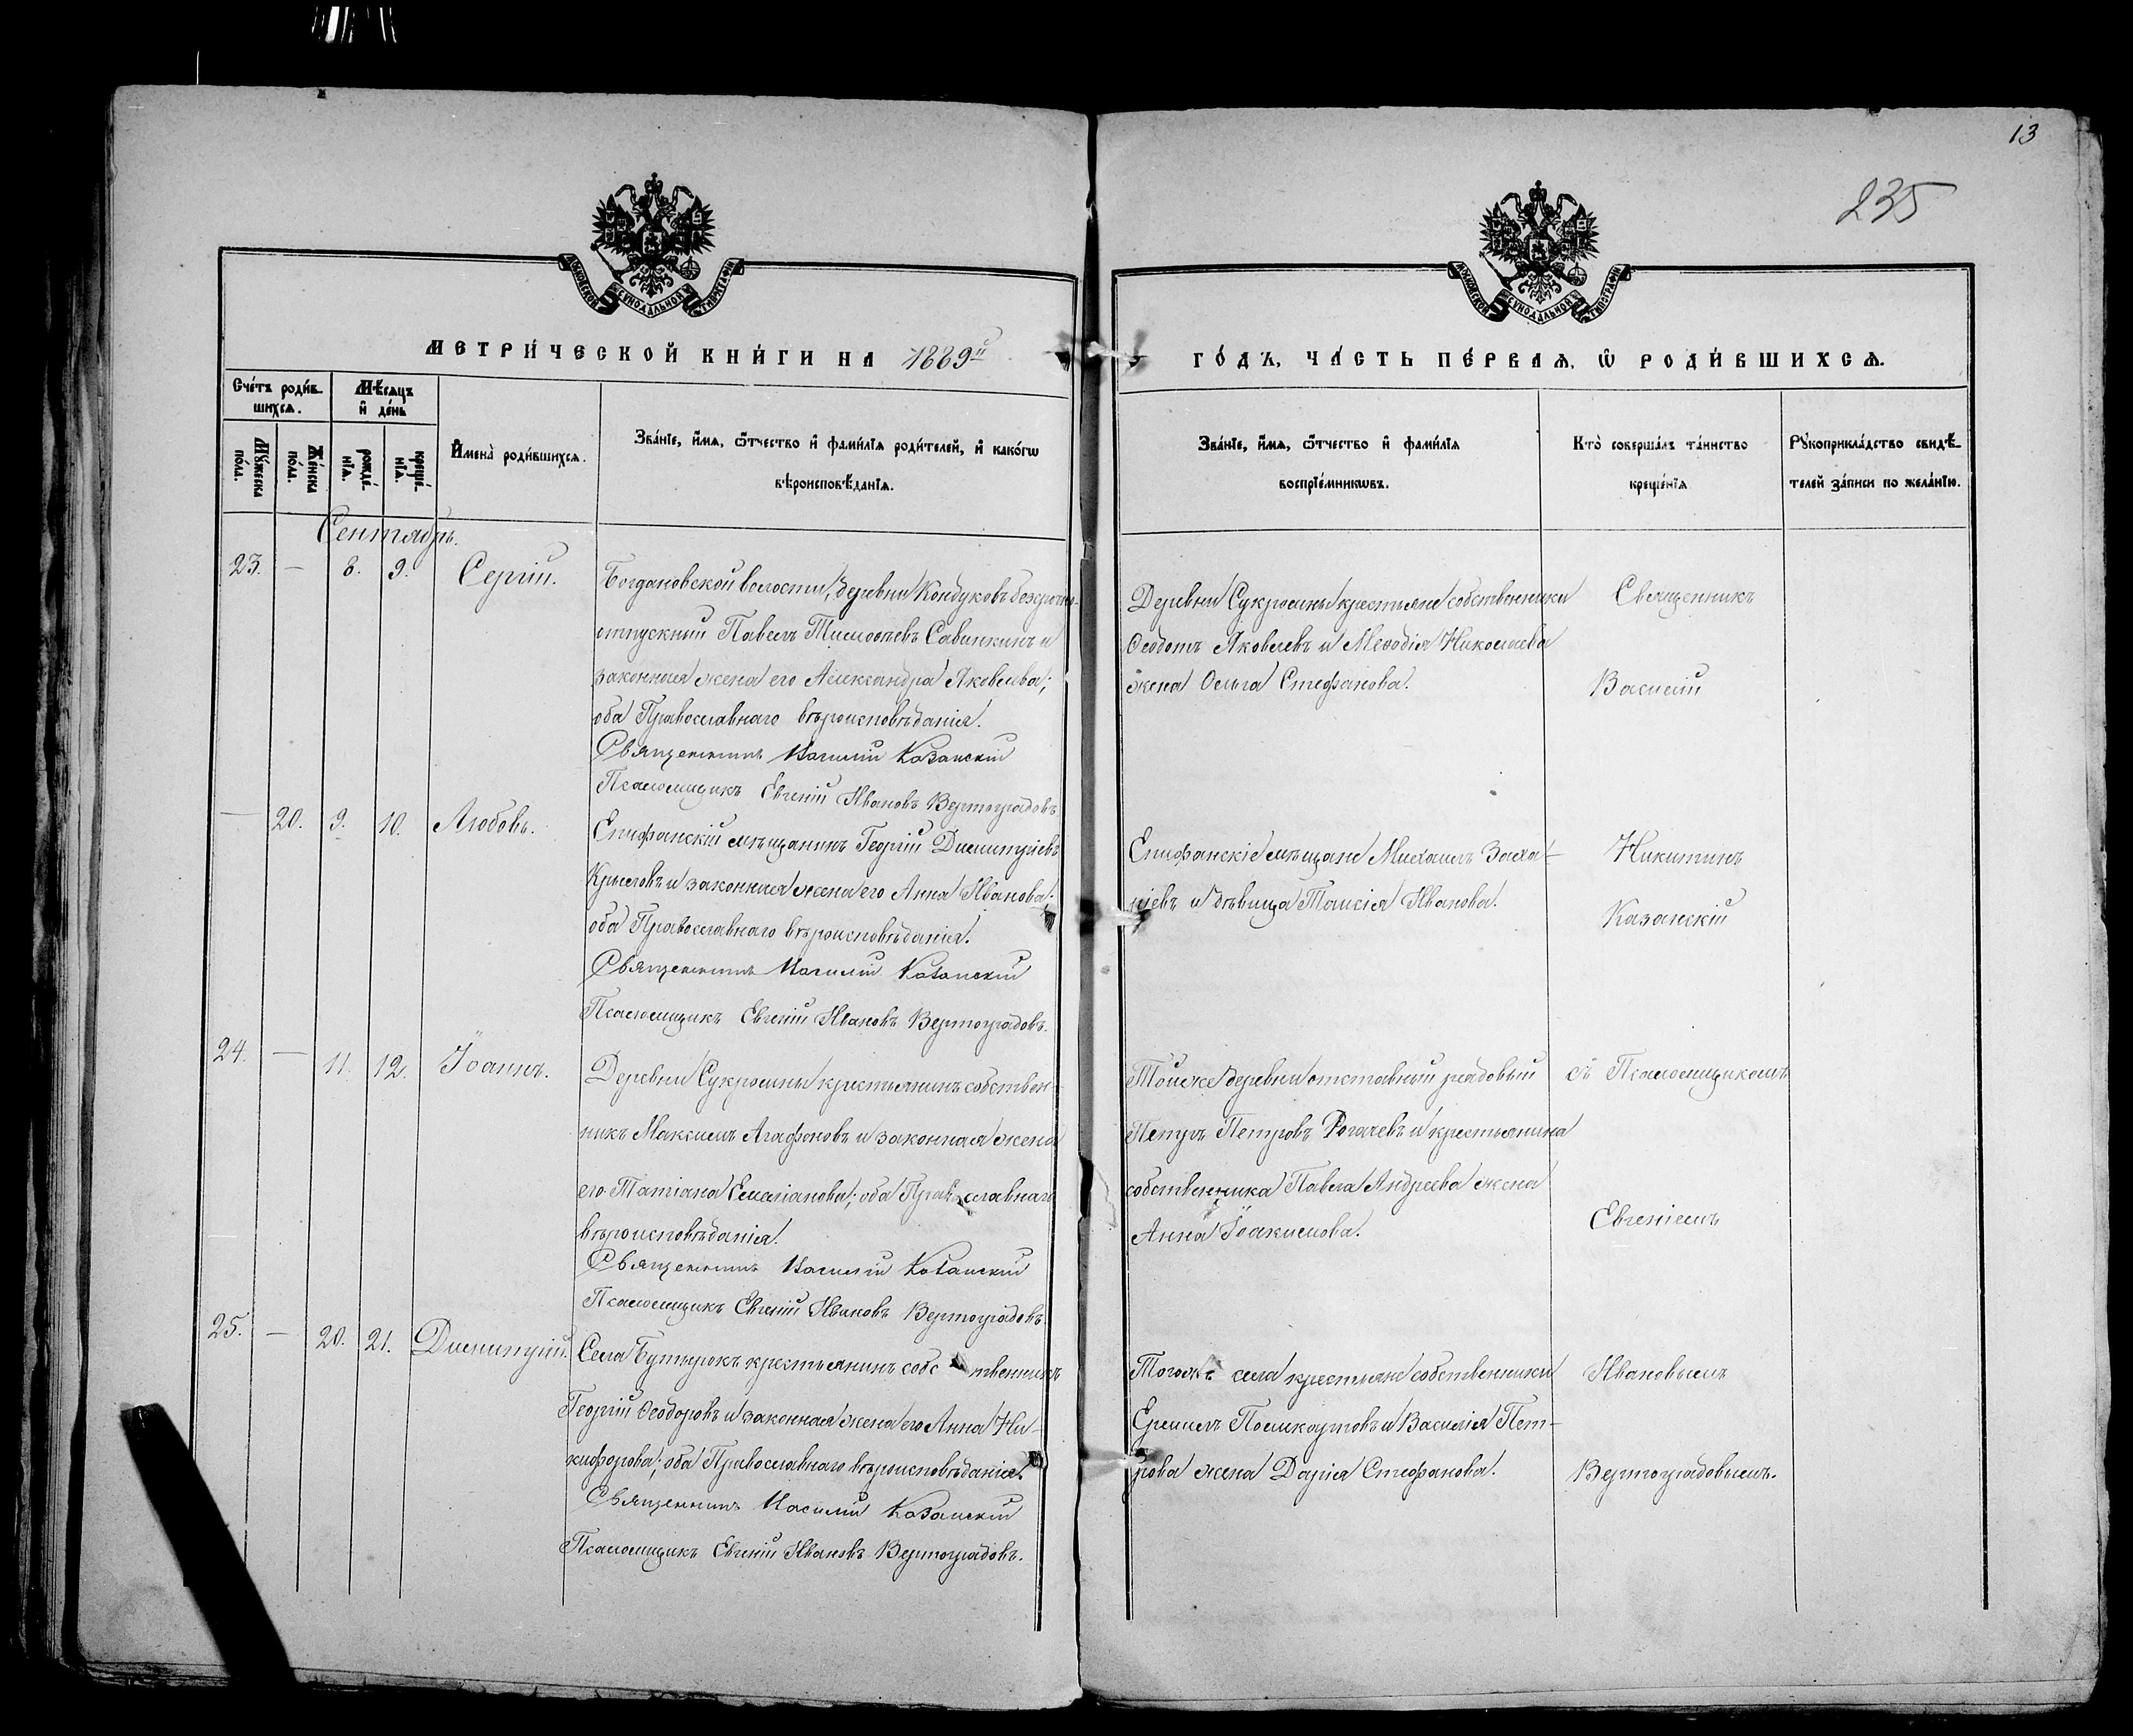 13
235
МОСКОВСКОЙ СѴНОДАЛЬНОЙ ТИПОГРАФІИ
МОСКОВСКОЙ СѴНОДАЛЬНОЙ ТИПОГРАФІИ
МЕТРИ́ЧЕСКОЙ КНИ́ГИ НА 1889й
ГО́ДЪ, ЧА́СТЬ ПЕ́РВАѦ, Ѡ҆ РОДИ́ВШИХСѦ.
Сче́тъ роди́в-
шихсѧ.
Мѣ́сѧцъ
и҆ де́нь
Мꙋ́жеска
по́ла.
Же́нска
по́ла.
рожде́-
нїѧ.
креще́-
нїѧ.
И҆мена̀ роди́вшихсѧ.
Зва́нїе, и҆́мѧ, ѻ҆́тчество и҆ фами́лїѧ роди́телей, и҆ како́гѡ
вѣроисповѣ́данїѧ.
Зва́нїе, и҆́мѧ, ѻ҆́тчество и҆ фами́лїѧ
воспрїе́мникѡвъ.
Кто̀ соверша́лъ та́инство
креще́нїѧ
Рꙋкоприкла́дство свидѣ́-
телей за́писи по жела́нїю.
Сентябрь.
23. — 8. 9. Сергій.
Богдановской волости, деревни Кондуковъ безсрочно-
отпускный Павелъ Тимоѳѣевъ Савинкинъ и
законная жена его Александра Яковлева;
оба Православнаго вѣроисповѣданія.
Священникъ Василій Казанскій
Псаломщикъ Евгеній Ивановъ Вертоградовъ
Деревни Сукромны крестьяне собственники
Ѳеодотъ Яковлевъ и Меѳодія Николаева
жена Ольга Стефанова.
Священникъ
Василій
— 20. 9. 10. Любовь.
Епифанскій мѣщанинъ Георгій Димитріевъ
Крыловъ и законная жена его Анна Иванова;
оба Православнаго вѣроисповѣданія.
Священникъ Василій Казанскій
Псаломщикъ Евгеній Ивановъ Вертоградовъ.
Епифанскіе мѣщане Михаилъ Заха-
ріевъ и дѣвица Таисія Иванова.
Никитинъ
Казанскій
24. — 11. 12. Іоаннъ.
Деревни Сукромны крестьянинъ собствен-
никъ Максимъ Агафоновъ и законная жена
его Татіана Емиліанова; оба Православнаго
вѣроисповѣданія.
Священникъ Василій Казанскій
Псаломщикъ Евгеній Ивановъ Вертоградовъ
Тойже деревни отставный рядовый
Петръ Петровъ Рогачевъ и крестьянина
собственника Павла Андреева жена
Анна Іоакимова.
съ Псаломщикомъ
Евгеніемъ
25. — 20. 21. Димитрій.
Села Бутырокъ крестьянинъ собственникъ
Георгій Ѳеодоровъ и законная жена его Анна Ни-
кифорова; оба Православнаго вѣроисповѣданія.
Священникъ Василій Казанскій
Псаломщикъ Евгеній Ивановъ Вертоградовъ.
Тогоже села крестьяне собственники
Ермилъ Поликарповъ и Василія Пет-
рова жена Дарія Стефанова.
Ивановымъ
Вертоградовымъ.